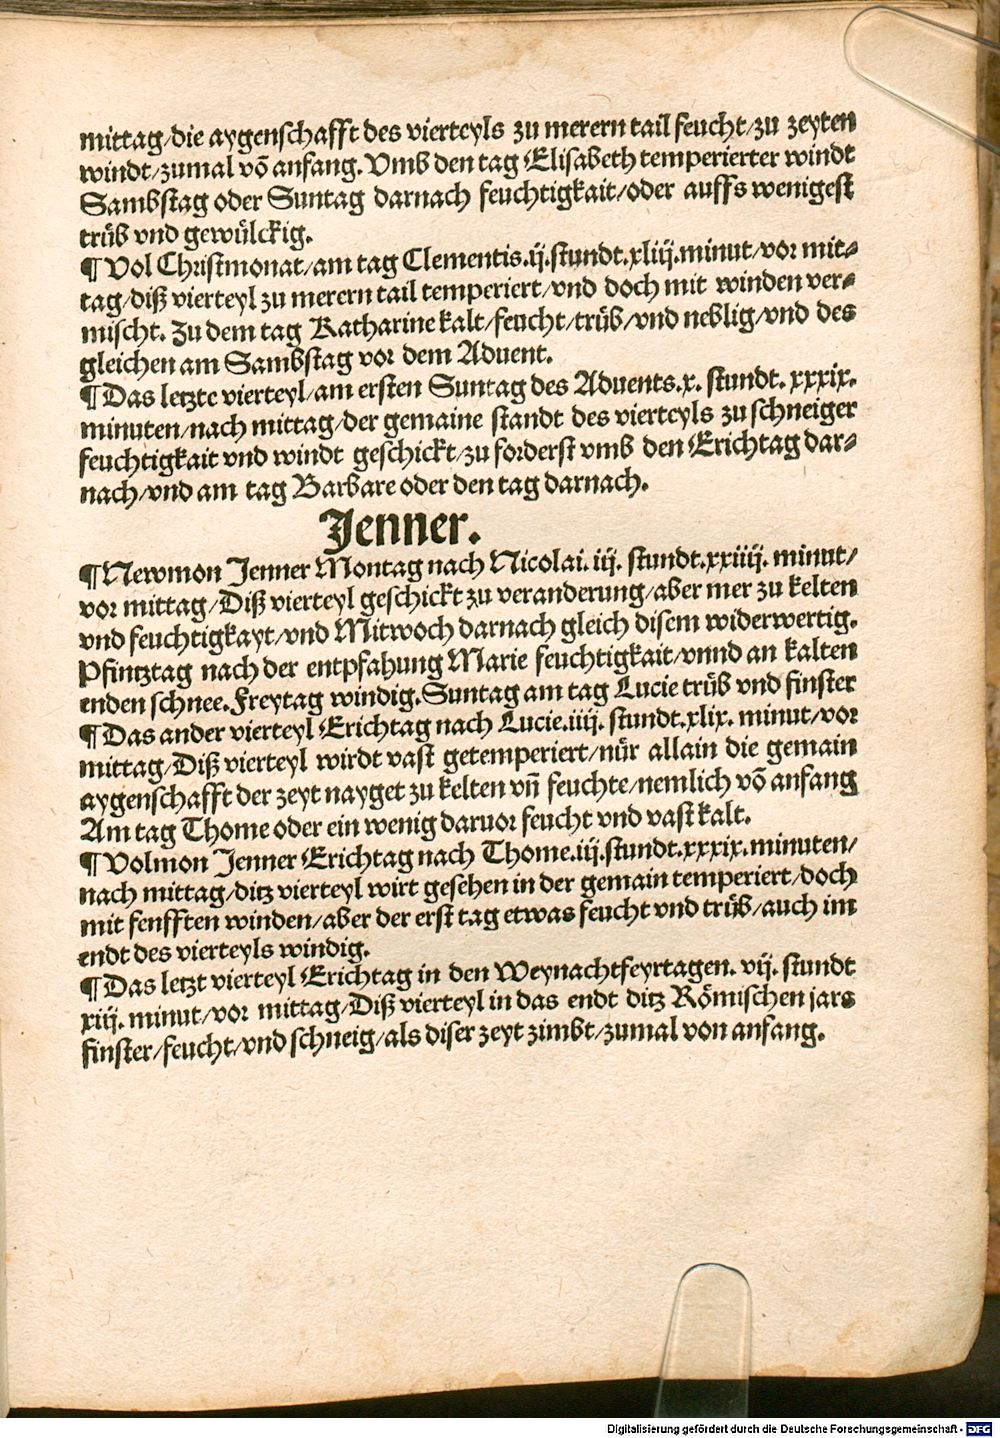 mittag/die aygenschafft des vierteyls zu merern tail feucht/zu zeyten
windt/zumal võ anfang. Vmb den tag Elisabeth temperierter windt
Sambstag oder Suntag darnach feuchtigkait/oder auffs wenigest
trüb vnd gewülckig.
¶ Vol Christmonat/am tag Clementis.ij.stundt.xliij.minut/vor mit⸗
tag/diß vierteyl zu merern tail temperiert/vnd doch mit winden ver⸗
mischt. Zu dem tag Katharine kalt/feucht/trüb/vnd neblig/vnd des
gleichen am Sambstag vor dem Aduent.
¶ Das letzte vierteyl/am ersten Suntag des Aduents.x. stundt. xxxix.
minuten/nach mittag/der gemaine standt des vierteyls zu schneiger
feuchtigkait vnd windt geschickt/zu forderst vmb den Erichtag dar⸗
nach/vnd am tag Barbare oder den tag darnach.
Jenner.
¶ Newmon Jenner Montag nach Nicolai. iij. stundt.xxiiij. minut/
vor mittag/Diß vierteyl geschickt zu veranderung/aber mer zu kelten
vnd feuchtigkayt/vnd Mitwoch darnach gleich disem widerwertig.
Pfintztag nach der entpfahung Marie feuchtigkait/vnnd an kalten
enden schnee.Freytag windig.Suntag am tag Lucie trüb vnd finster
¶ Das ander vierteyl Erichtag nach Lucie.iiij. stundt.xlix. minut/vor
mittag/Diß vierteyl wirdt vast getemperiert/nür allain die gemain
aygenschafft der zeyt nayget zu kelten vñ feuchte/nemlich võ anfang
Am tag Thome oder ein wenig daruor feucht vnd vast kalt.
¶ Volmon Jenner Erichtag nach Thome.iij.stundt.xxxix.minuten/
nach mittag/ditz vierteyl wirt gesehen in der gemain temperiert/doch
mit senfften winden/aber der erst tag etwas feucht vnd trüb/auch im
endt des vierteyls windig.
¶ Das letzt vierteyl Erichtag in den Weynachtfeyrtagen. vij. stundt
xiij. minut/vor mittag/Diß vierteyl in das endt ditz Römischen jars
finster/feucht/vnd schneig/als diser zeyt zimbt/zumal von anfang.
Digitalisierung gefördert durch die Deutsche Forschungsgemeinschaft - DFG